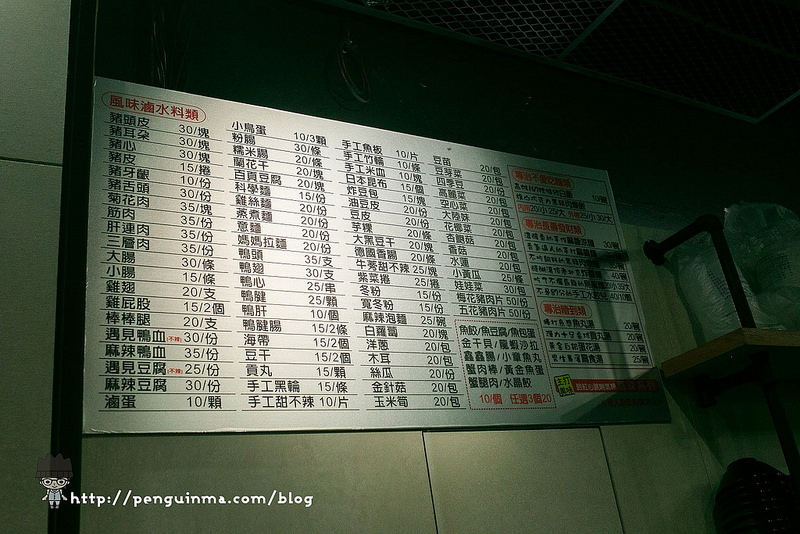 風味滷水料類
豬頭皮 30/塊
豬耳朵 30/塊
豬心 30/塊
豬皮 15/捲
豬牙齦 10/份
豬舌頭 30/份
菊花肉 35/塊
筋肉 35/份
肝連肉 35/份
三層肉 35/份
大腸 30/條
小腸 15/條
雞翅 20/支
雞屁股 15/2個
棒棒腿 20/支
遇見鴨血(不辣) 30/份
麻辣鴨血 35/份
遇見豆腐(不辣) 25/份
麻辣豆腐 30/份
滷蛋 10/顆
小鳥蛋 10/3顆
粉腸 30/條
糯米腸 20/條
蘭花干 20/塊
百頁豆腐 20/塊
科學麵 15/份
雞絲麵 20/份
蒸煮麵 20/份
意麵 20/份
媽媽拉麵 20/份
鴨頭 35/支
鴨翅 30/支
鴨心 25/串
鴨腱 25/顆
鴨肝 10/個
鴨腱腸 15/2條
海帶 15/2個
豆干 15/2個
貢丸 15/顆
手工黑輪 15/條
手工甜不辣 10/片
手工魚板 10/片
手工竹輪 10/條
手工米血 10/塊
日本昆布 15/個
炸豆包 15/塊
油豆皮 20/份
豆皮 15/份
芋粿 20/條
大黑豆干 20/塊
德國香腸 20/條
牛蒡甜不辣 25/塊
紫菜捲 25/捲
冬粉 15/份
寬冬粉 15/份
麻辣泡麵 25/碗
白蘿蔔 20/塊
洋蔥 20/包
木耳 20/包
絲瓜 20/份
金針菇 20/包
玉米筍 20/包
豆苗 20/包
豆芽菜 20/包
四季豆 20/份
高麗菜 20/包
空心菜 20/包
大陸妹 20/包
花椰菜 20/包
杏鮑菇 20/包
香菇 20/包
水蓮 20/包
小黃瓜 25/條
娃娃菜 30/包
梅花豬肉片 50/份
五花豬肉片 50/份
魚餃/魚豆腐/魚包蛋
金干貝/龍蝦沙拉
鑫鑫腸/小章魚丸
蟹肉棒/黃金魚蛋
蟹腿肉/水晶餃
10/個 任選3個20
10/碗
內用20/小 25/大 外帶25/小 30/大
專治長青發財類
30/碗
40/碗
專治膽到類
20/碗
20/碗
20/碗
25/碗
http://penguinma.com/blog